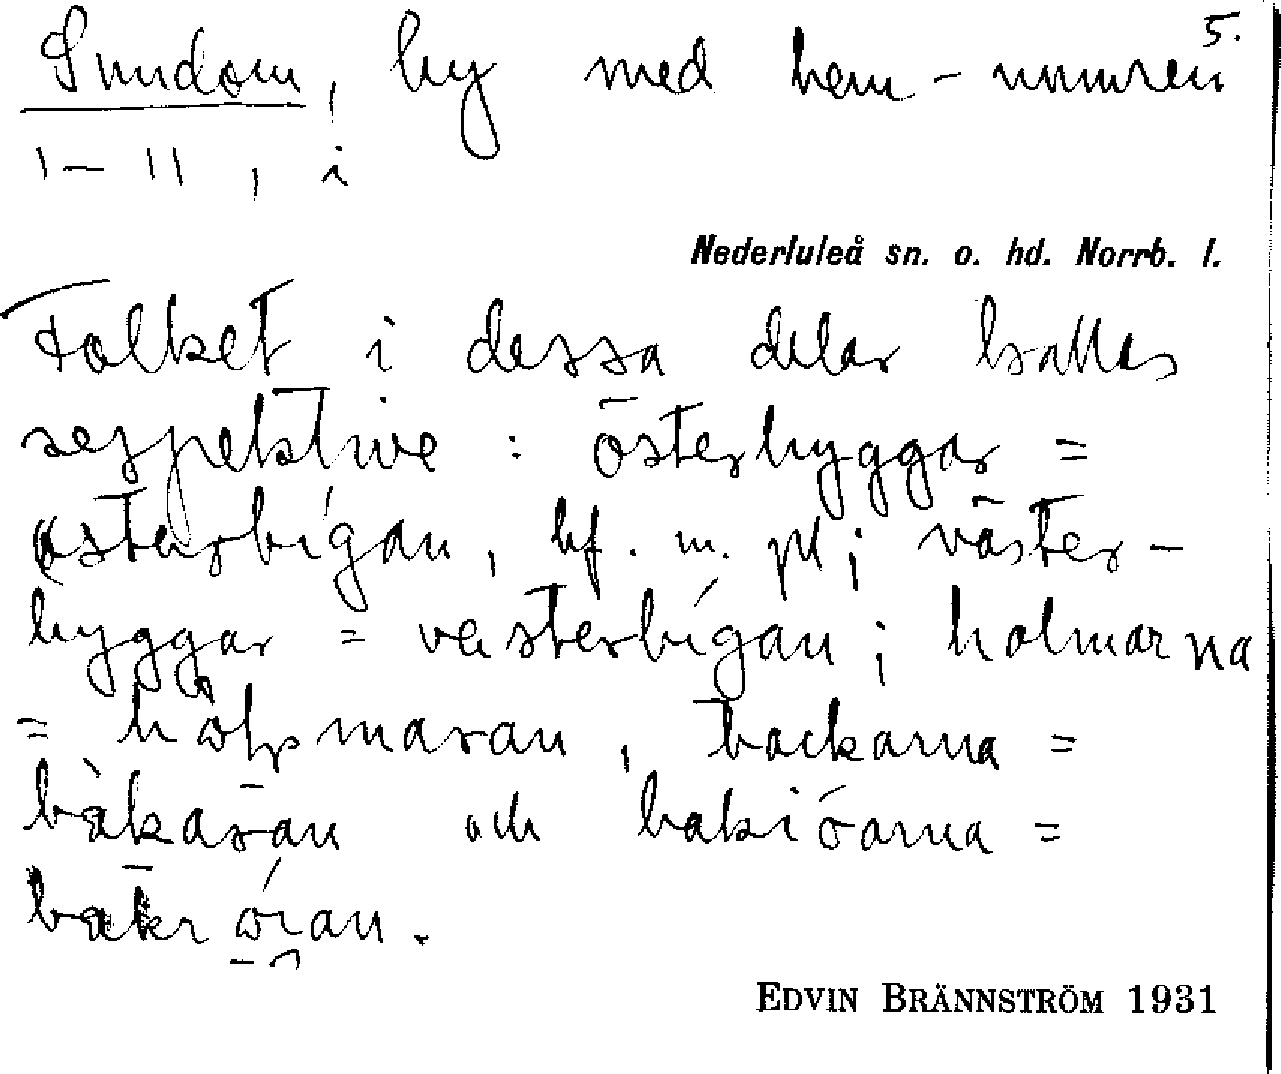 5.
Sundom, by med hem-numren
1-11, i
Nederluleå sn. o. hd. Norrb. l.
Folket i dessa delar kallas
respektive : österbyggar =
østerbígan, bf. m. pl; väster-
byggar = vesterbígan; holmarna
= hòlmaran, backarna =
bàkaran och bakiörarna =
.
EDVIN BRÄNNSTRÖM 1931